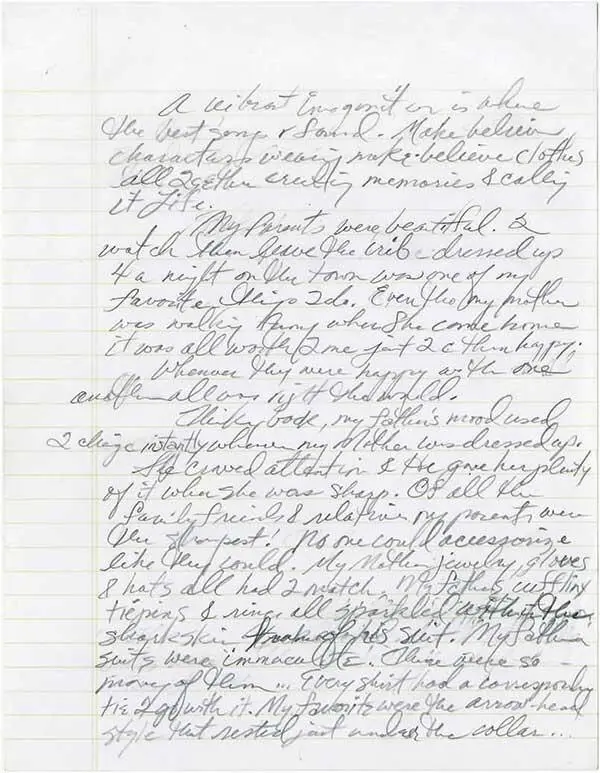 A vibrant Imagination is where
the best songs r found. Make believe
characters wearing make-believe clothes
all 2gether creating memories & calling
it Life.
My Parents were beautiful. 2
watch them leave the crib dressed up
4 a night on the town was one of my
favorite things 2 do. Even tho my mother
was walking funny when she come home
it was all worth 2 me just 2 c them happy.
Whenever they were happy with one
another all was right the world.
Thinking back, my father's mood used
2 change instantly whenever my Mother was dressed up.
She craved attention & He gave her plenty
of it when she was sharp. Of all the
family friends & relatives my parents were
the sharpest! No one could accessorize
like they could. My Mother jewelry, gloves
& hats all had 2 match. My father's cufflinx
tiepins & rings all sparkled the
sharkskin of his suit. My father's
suits were immaculate. There were so
many of them... Every shirt had a corresponding
tie 2 go with it. My favorite were the arrow-head
style that rested just under the collar...